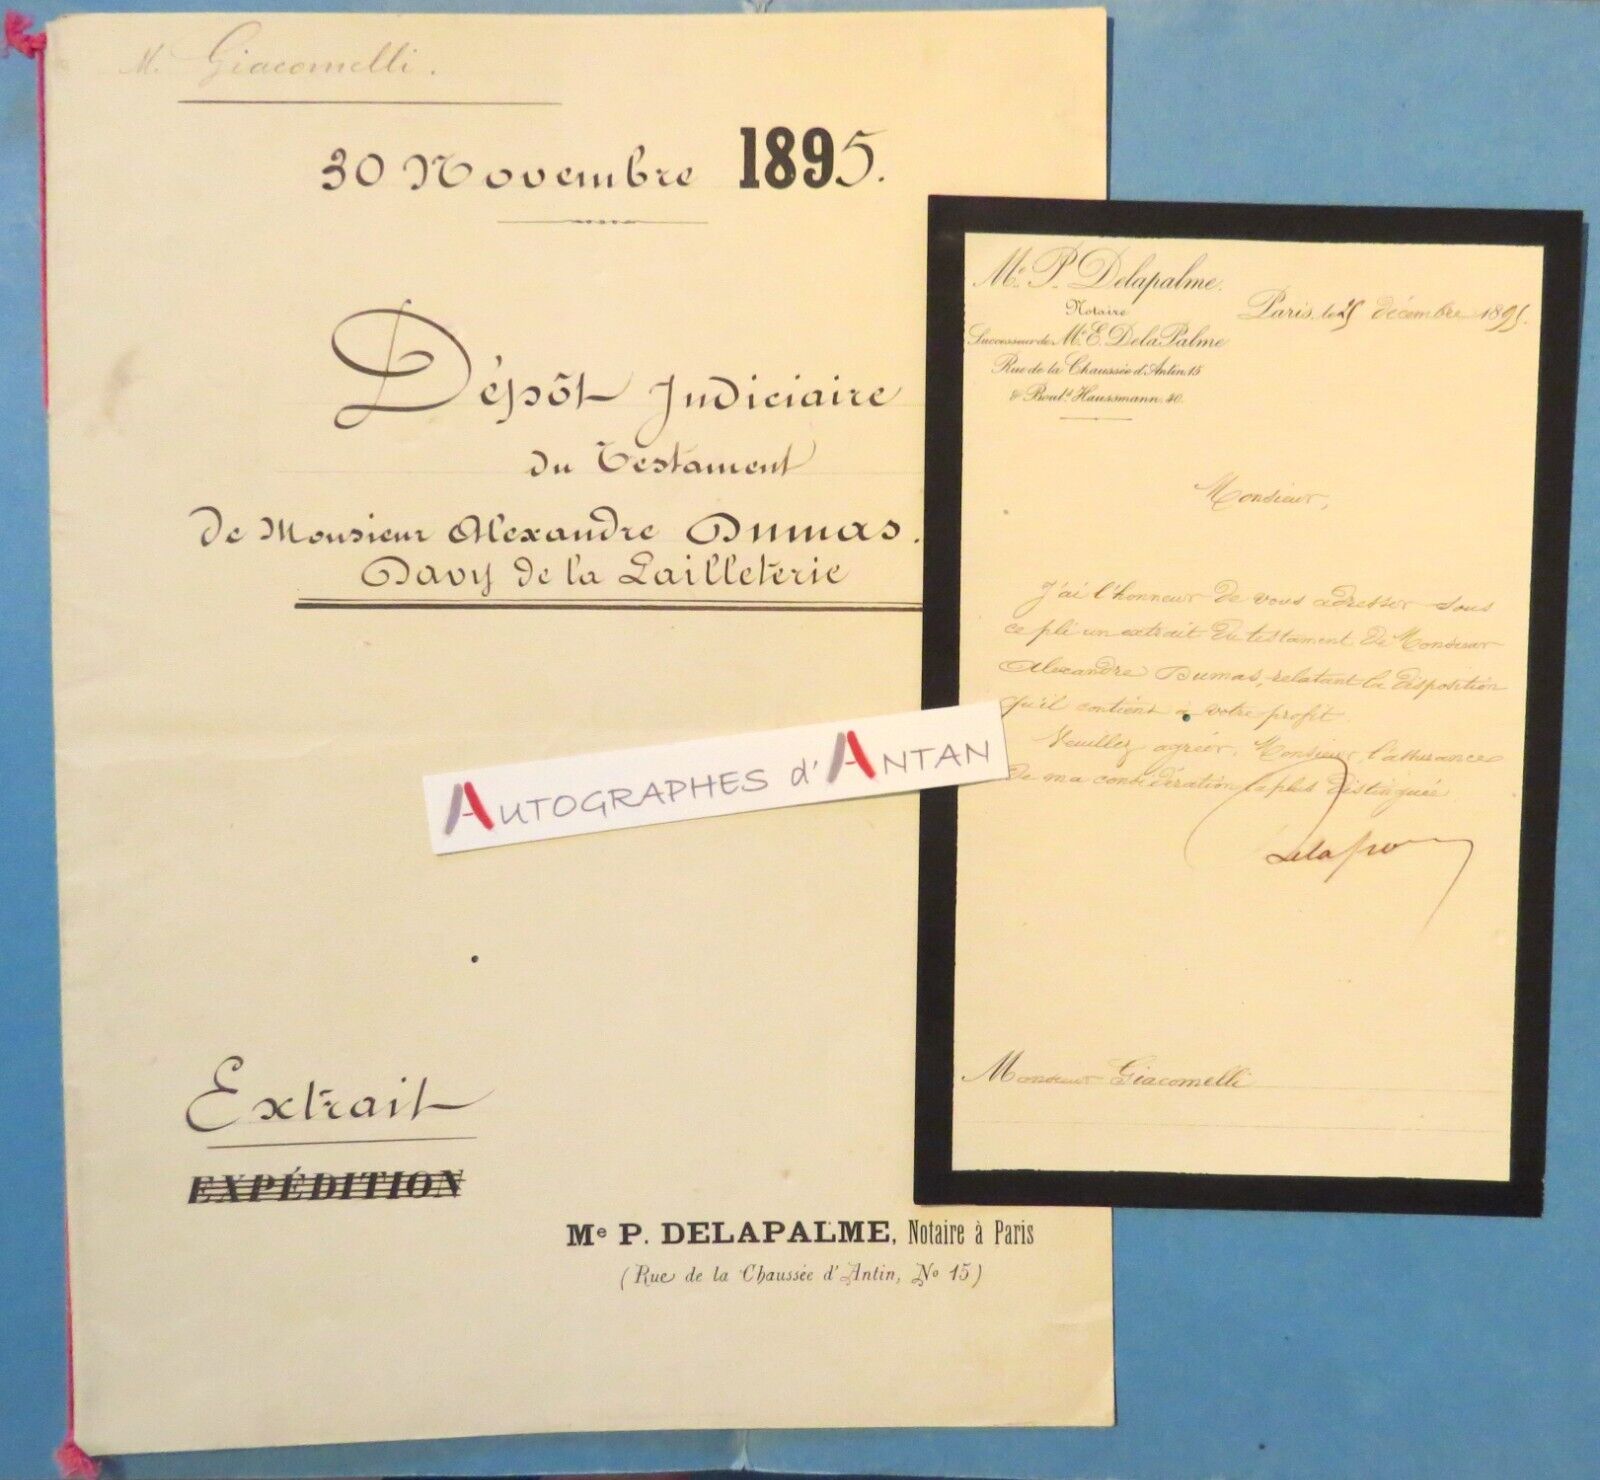 M. Giacomelli.
30 Novembre 1895.
Dépôt Judiciaire
du Testament
de Monsieur Alexandre Dumas.
Davy de la Pailleterie
Extrait
EXPÉDITION
Me P. DELAPALME, Notaire à Paris
(Rue de la Chaussée d'Antin, No 15)
AUTOGRAPHES d'ANTAN
Me. P. Delapalme.
Notaire
Successeur de Me. E. Dela Palme
Rue de la Chaussée d'Antin 15
& Bould. Haussmann. 40.
Paris, le 25 décembre 1895.
Monsieur,
J'ai l'honneur de vous adresser sous
ce pli un extrait du testament de Monsieur
Alexandre Dumas, relatant la disposition
qu'il contient à votre profit.
Veuillez agréer, Monsieur, l'assurance
de ma considération la plus distinguée
Monsieur Giacomelli